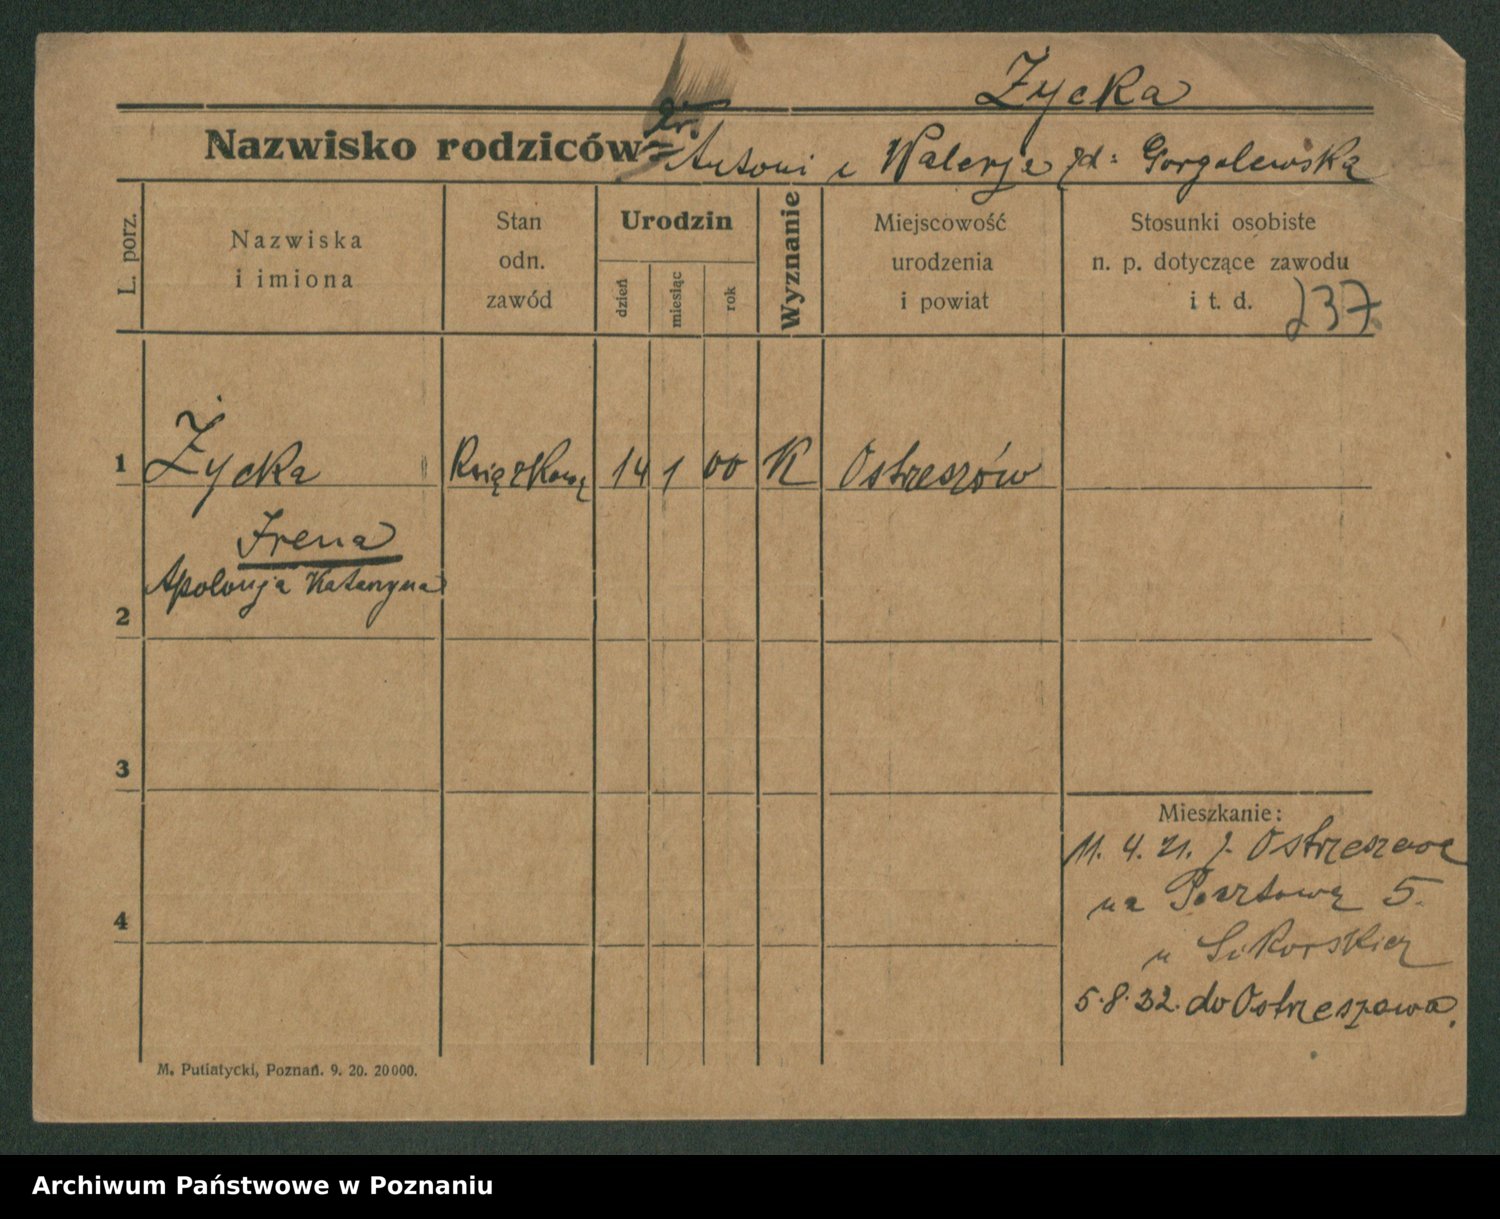 Życka
Nazwisko rodziców Antoni i Walerja zd: Gorgolewska
L. porz.
Nazwiska
i imiona
Stan
odn.
zawód
Urodzin
dzień
miesiąc
rok
Wyznanie
Miejscowość
urodzenia
i powiat
Stosunki osobiste
n. p. dotyczące zawodu
i t. d. 237
1 Życka Książkową 14 1 00 K Ostrzeszów
Irena
Apolonja Katarzyna
2
3
4
Mieszkanie:
11. 4. 21. z Ostrzeszowa
na Pocztową 5.
u Sikorskiej
5.8.32. do Ostrzeszowa.
M. Putiatycki, Poznań. 9. 20. 20000.
Archiwum Państwowe w Poznaniu